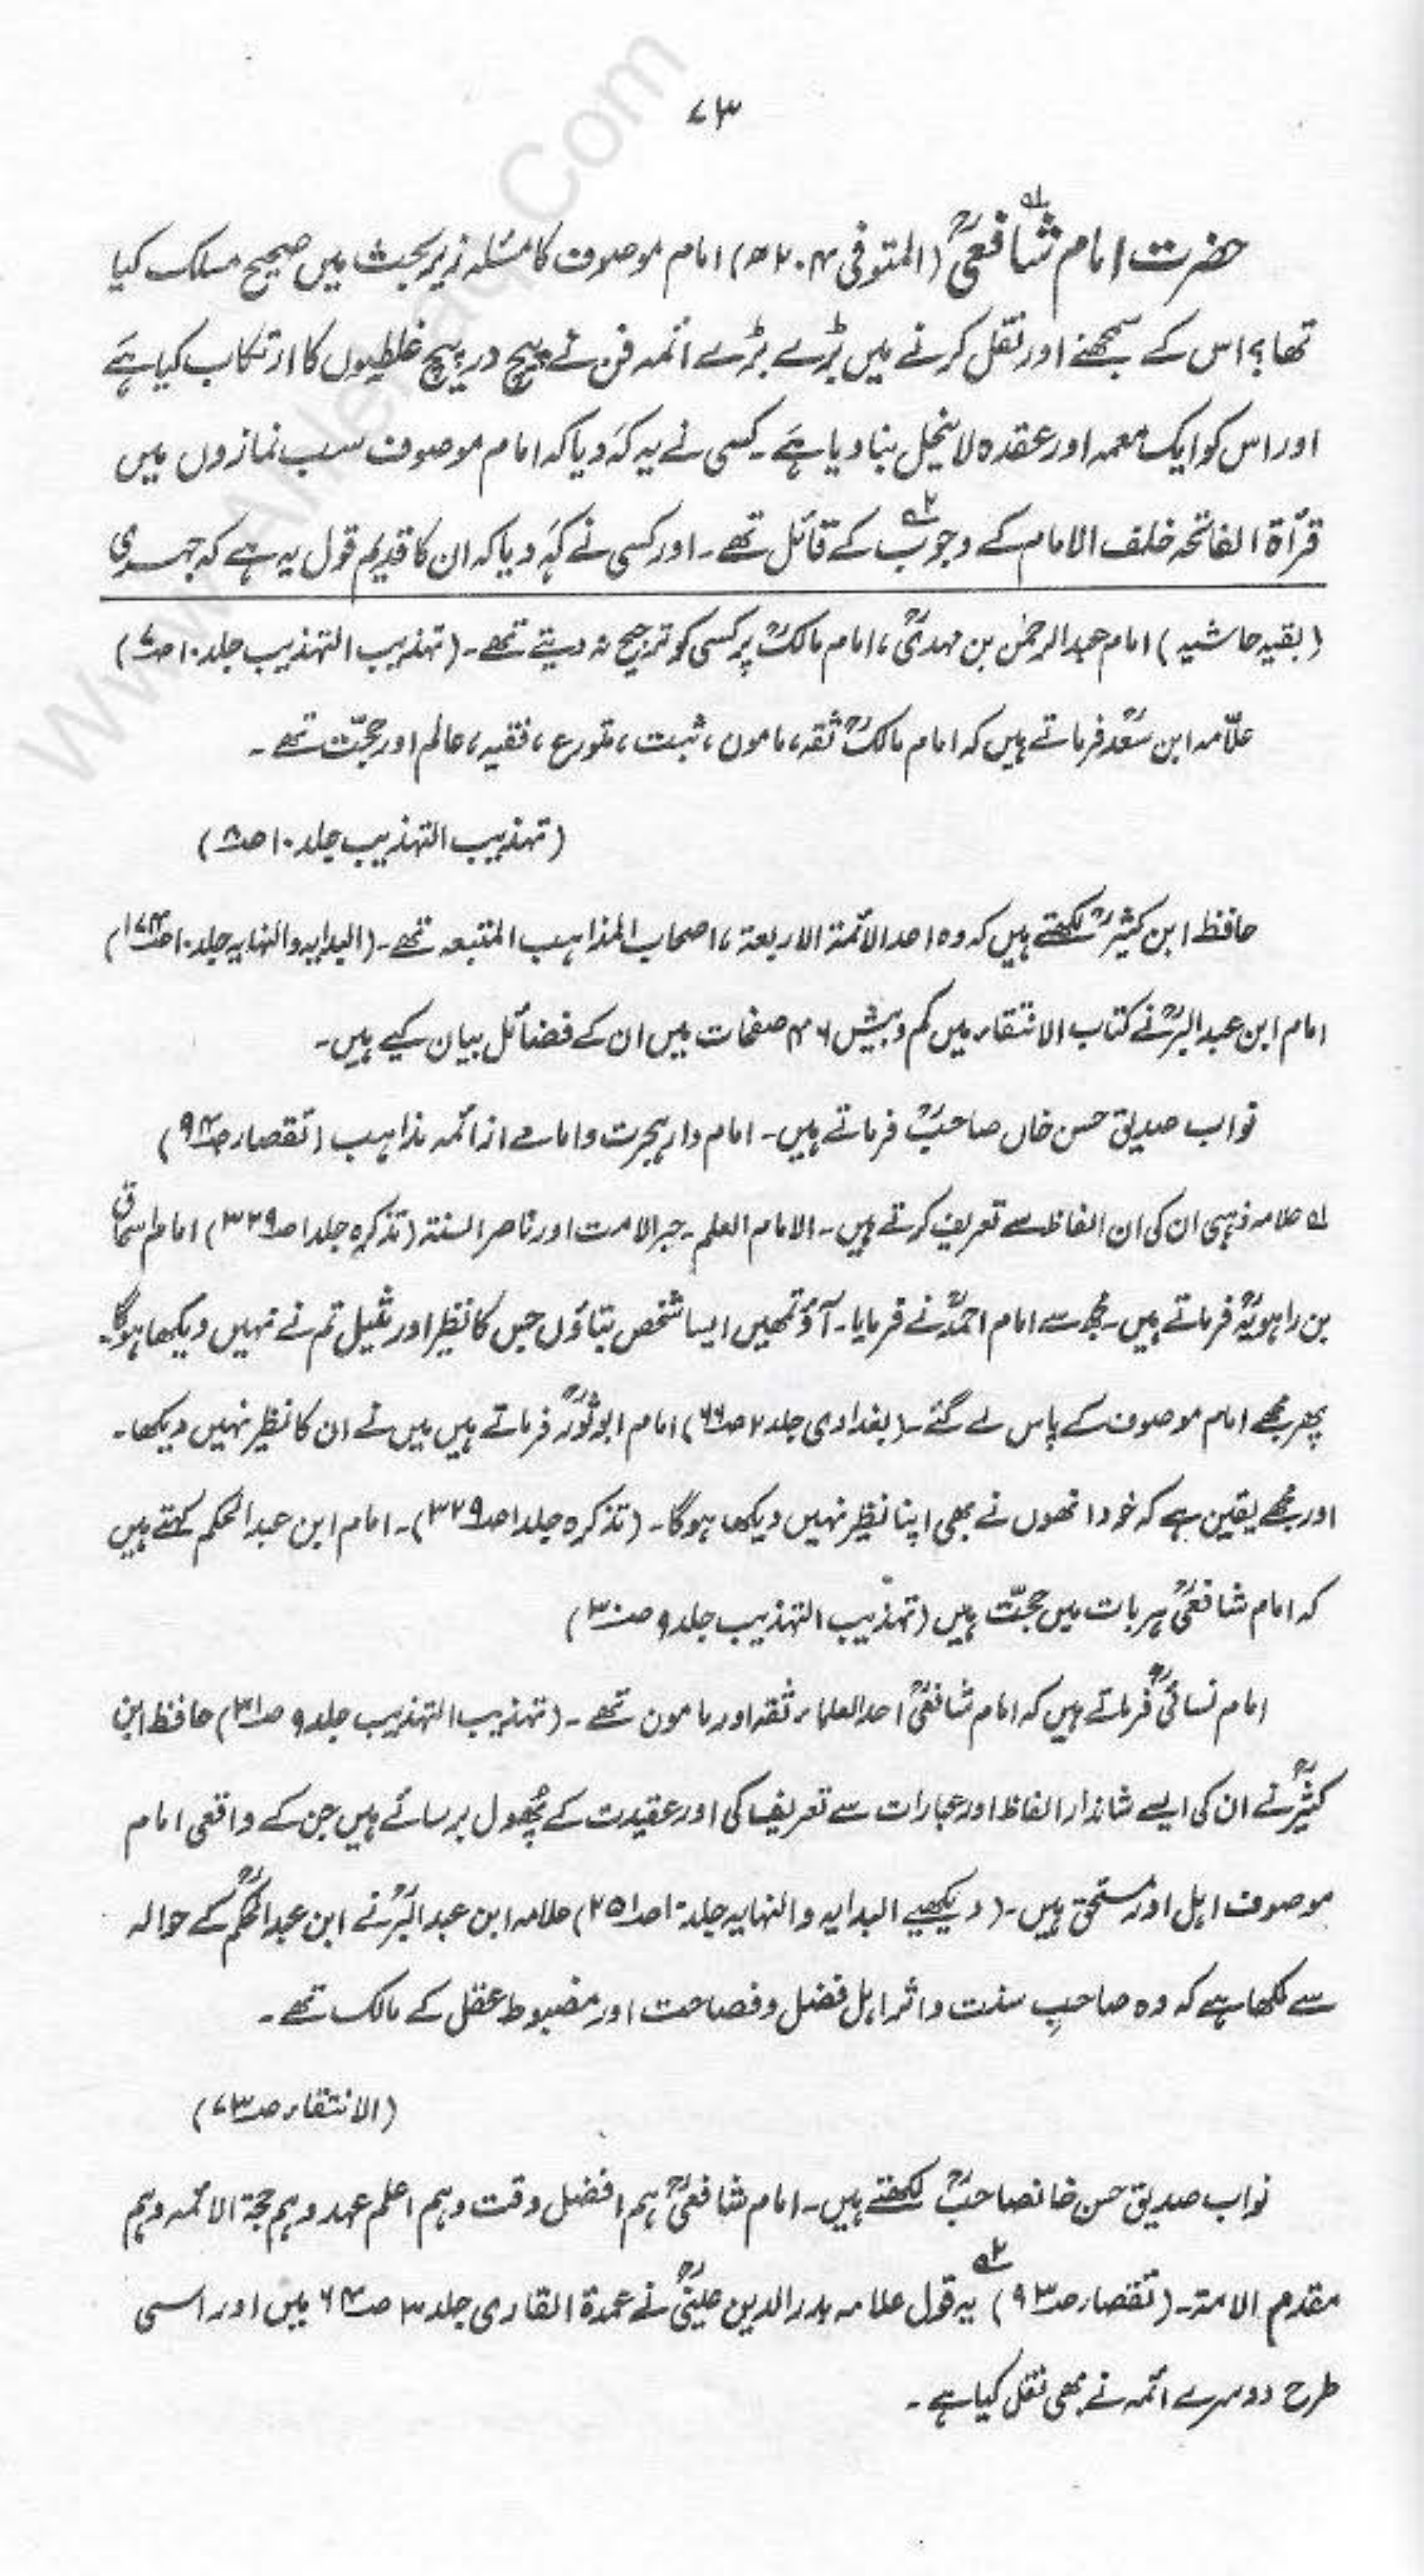 ۷۳
حضرت امام شافعیؒ ۱؎ (المتوفی ۲۰۴ھ) امام موصوف کا مسئلہ زیر بحث میں صحیح مسلک کیا
تھا؟ اس کے سمجھنے اور نقل کرنے میں بڑے بڑے ائمہ فن نے پیچ در پیچ غلطیوں کا ارتکاب کیا ہے
اور اس کو ایک معمہ اور عقدہ لاینحل بنا دیا ہے۔ کسی نے یہ کہہ دیا کہ امام موصوف سب نمازوں میں
قرأۃ الفاتحہ خلف الامام کے وجوب ۲؎ کے قائل تھے۔ اور کسی نے کہہ دیا کہ ان کا قدیم قول یہ ہے کہ جہری
(بقیہ حاشیہ) امام عبدالرحمٰن بن مہدیؒ، امام مالکؒ پر کسی کو ترجیح نہ دیتے تھے۔ (تہذیب التہذیب جلد ۱۰ ص۷)
علّامہ ابن سعدؒ فرماتے ہیں کہ امام مالکؒ ثقہ، مامون، ثبت، متورع، فقیہ، عالم اور حجّت تھے۔
(تہذیب التہذیب جلد ۱۰ ص۸)
حافظ ابن کثیرؒ لکھتے ہیں کہ وہ احد الائمۃ الاربعۃ، اصحاب المذاہب المتبعہ تھے۔ (البدایہ والنہایہ جلد ۱۰ ص۱۷۴)
امام ابن عبدالبرؒ نے کتاب الانتقاء میں کم و بیش ۴۶ صفحات میں ان کے فضائل بیان کیے ہیں۔
نواب صدیق حسن خاں صاحبؒ فرماتے ہیں۔ امام دار ہجرت و امامے از ائمہ مذاہب (تقصار ص۹۴)
۱؎ علامہ ذہبی ان کی ان الفاظ سے تعریف کرتے ہیں۔ الامام العلم۔ حبر الامت اور ناصر السنۃ (تذکرہ جلد ۱ ص۳۲۹) امام اسحاق
بن راہویہؒ فرماتے ہیں۔ مجھ سے امام احمدؒ نے فرمایا۔ آؤ تمھیں ایسا شخص بتاؤں جس کا نظیر اور مثیل تم نے نہیں دیکھا ہوگا۔
پھر مجھے امام موصوف کے پاس لے گئے۔ (بغدادی جلد ۲ ص۶۶) امام ابو ثورؒ فرماتے ہیں میں نے ان کا نظیر نہیں دیکھا۔
اور مجھے یقین ہے کہ خود انھوں نے بھی اپنا نظیر نہیں دیکھا ہوگا۔ (تذکرہ جلد ۱ ص۳۲۹)۔ امام ابن عبدالحکم کہتے ہیں
کہ امام شافعیؒ ہر بات میں حجّت ہیں (تہذیب التہذیب جلد ۹ ص۳۰)
امام نسائیؒ فرماتے ہیں کہ امام شافعیؒ احد العلماء ثقہ اور مامون تھے۔ (تہذیب التہذیب جلد ۹ ص۳۱) حافظ ابن
کثیرؒ نے ان کی ایسے شاندار الفاظ اور عبارات سے تعریف کی اور عقیدت کے پھول برسائے ہیں جن کے واقعی امام
موصوف اہل اور مستحق ہیں۔ (دیکھیے البدایہ والنہایہ جلد ۱۰ ص۲۵۱) علامہ ابن عبدالبرؒ نے ابن عبدالحکمؒ کے حوالہ
سے لکھا ہے کہ وہ صاحبِ سنت و اثر اہل فضل و فصاحت اور مضبوط عقل کے مالک تھے۔
(الانتقاء ص۷۳)
نواب صدیق حسن خانصاحبؒ لکھتے ہیں۔ امام شافعیؒ ہم افضل وقت و ہم اعلم عہد و ہم حجۃ الائمہ و ہم
مقدم الامۃ۔ (تقصار ص۹۳) ۲؎ یہ قول علامہ بدر الدین عینیؒ نے عمدۃ القاری جلد ۳ ص۶۴ میں اور اسی
طرح دوسرے ائمہ نے بھی نقل کیا ہے۔
Www.Ahlehaq.Com